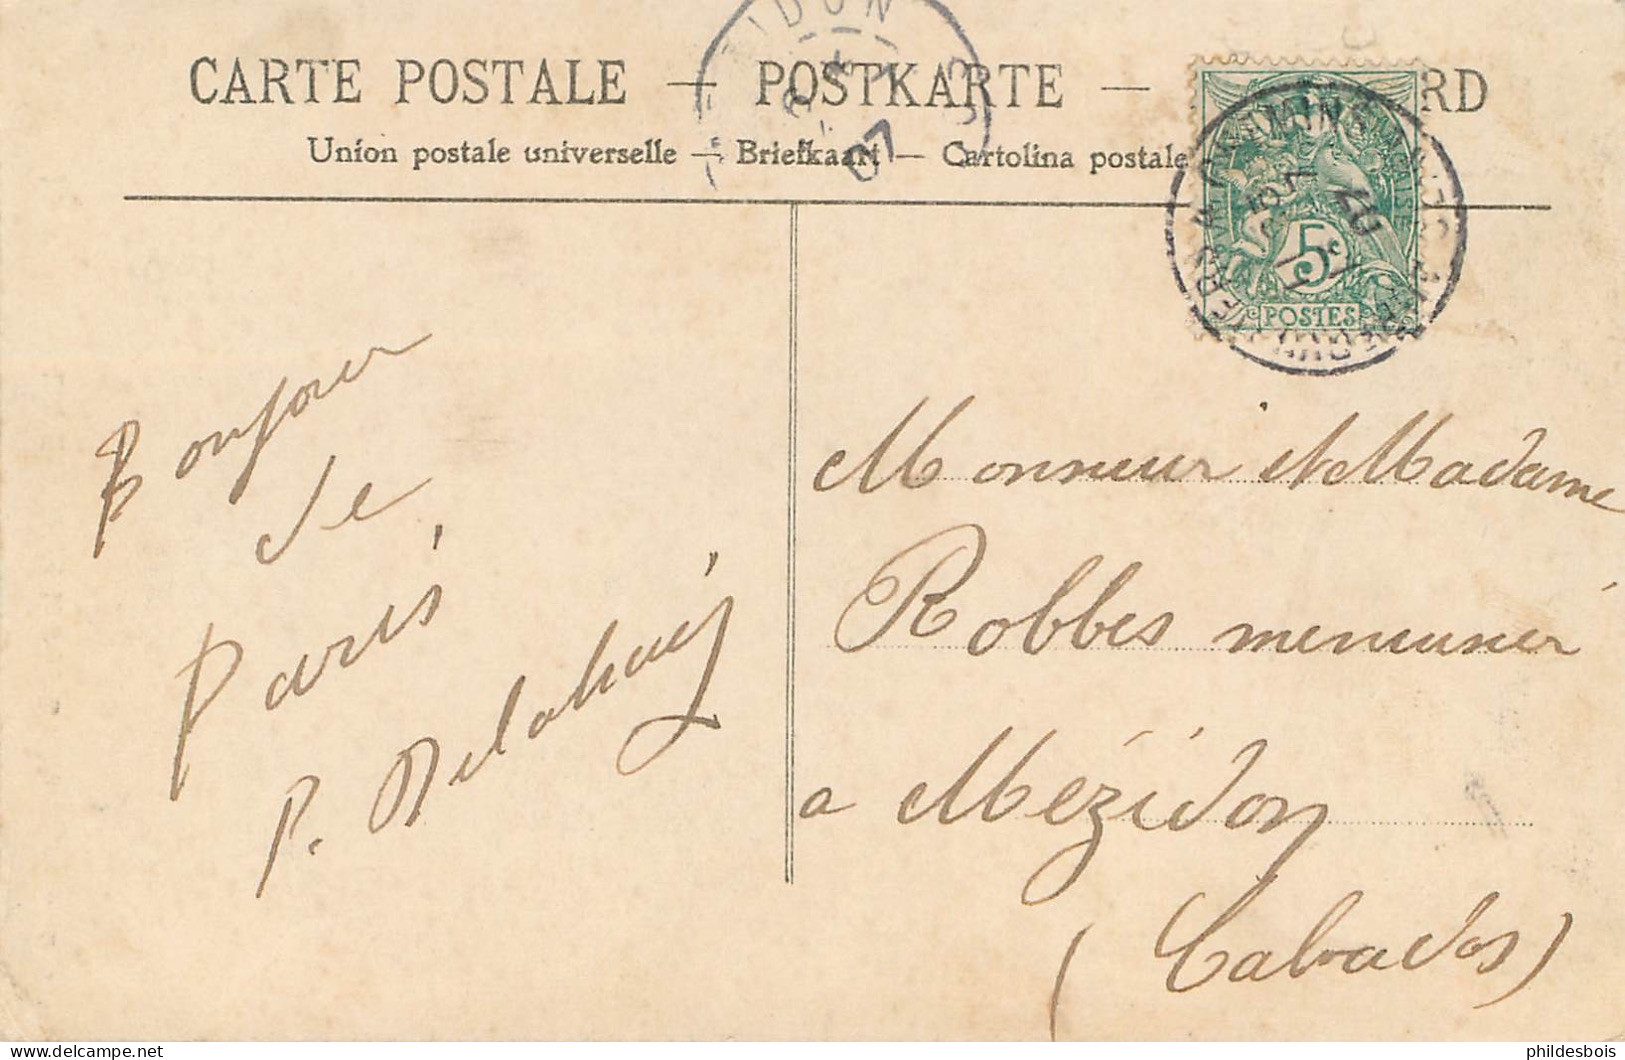 CARTE POSTALE — POSTKARTE — RD
Union postale universelle — Briefkaart — Cartolina postale
07
5c
POSTES
Bonjour
de
Paris
P. Delahaij
Monsieur et Madame
Robbes menuisier
a Mézidon
(Calvados)
phildesbois